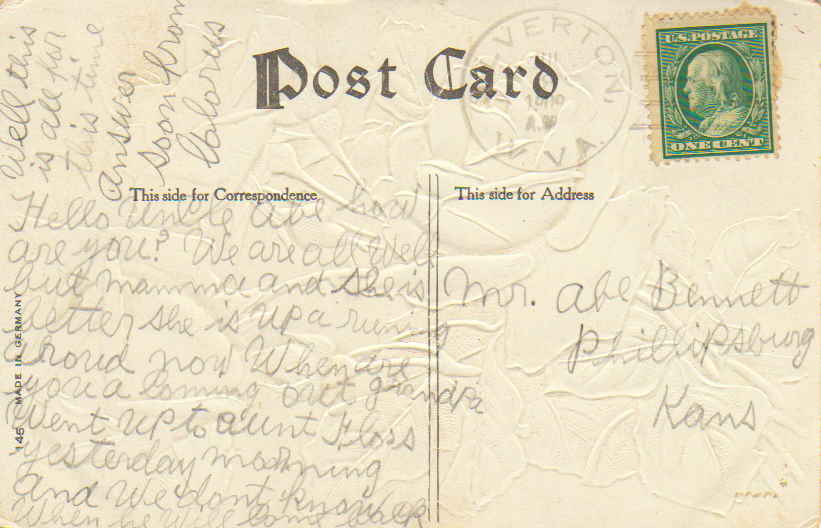 Post Card
VERTON,
W. VA.
A.M
U.S. POSTAGE
ONE CENT
This side for Correspondence
This side for Address
Hello Uncle Abe how
are you? We are all well
but mamma and she is
better she is up a runing
aroud now When are
you a coming out grandpa
Went up to aunt Floss
yesterday morning
and We dont know
When he Will come back
Well this
is all for
this time
answer
soon from
Mr. Abe Bennett
Phillipsburg
Kans
145 MADE IN GERMANY